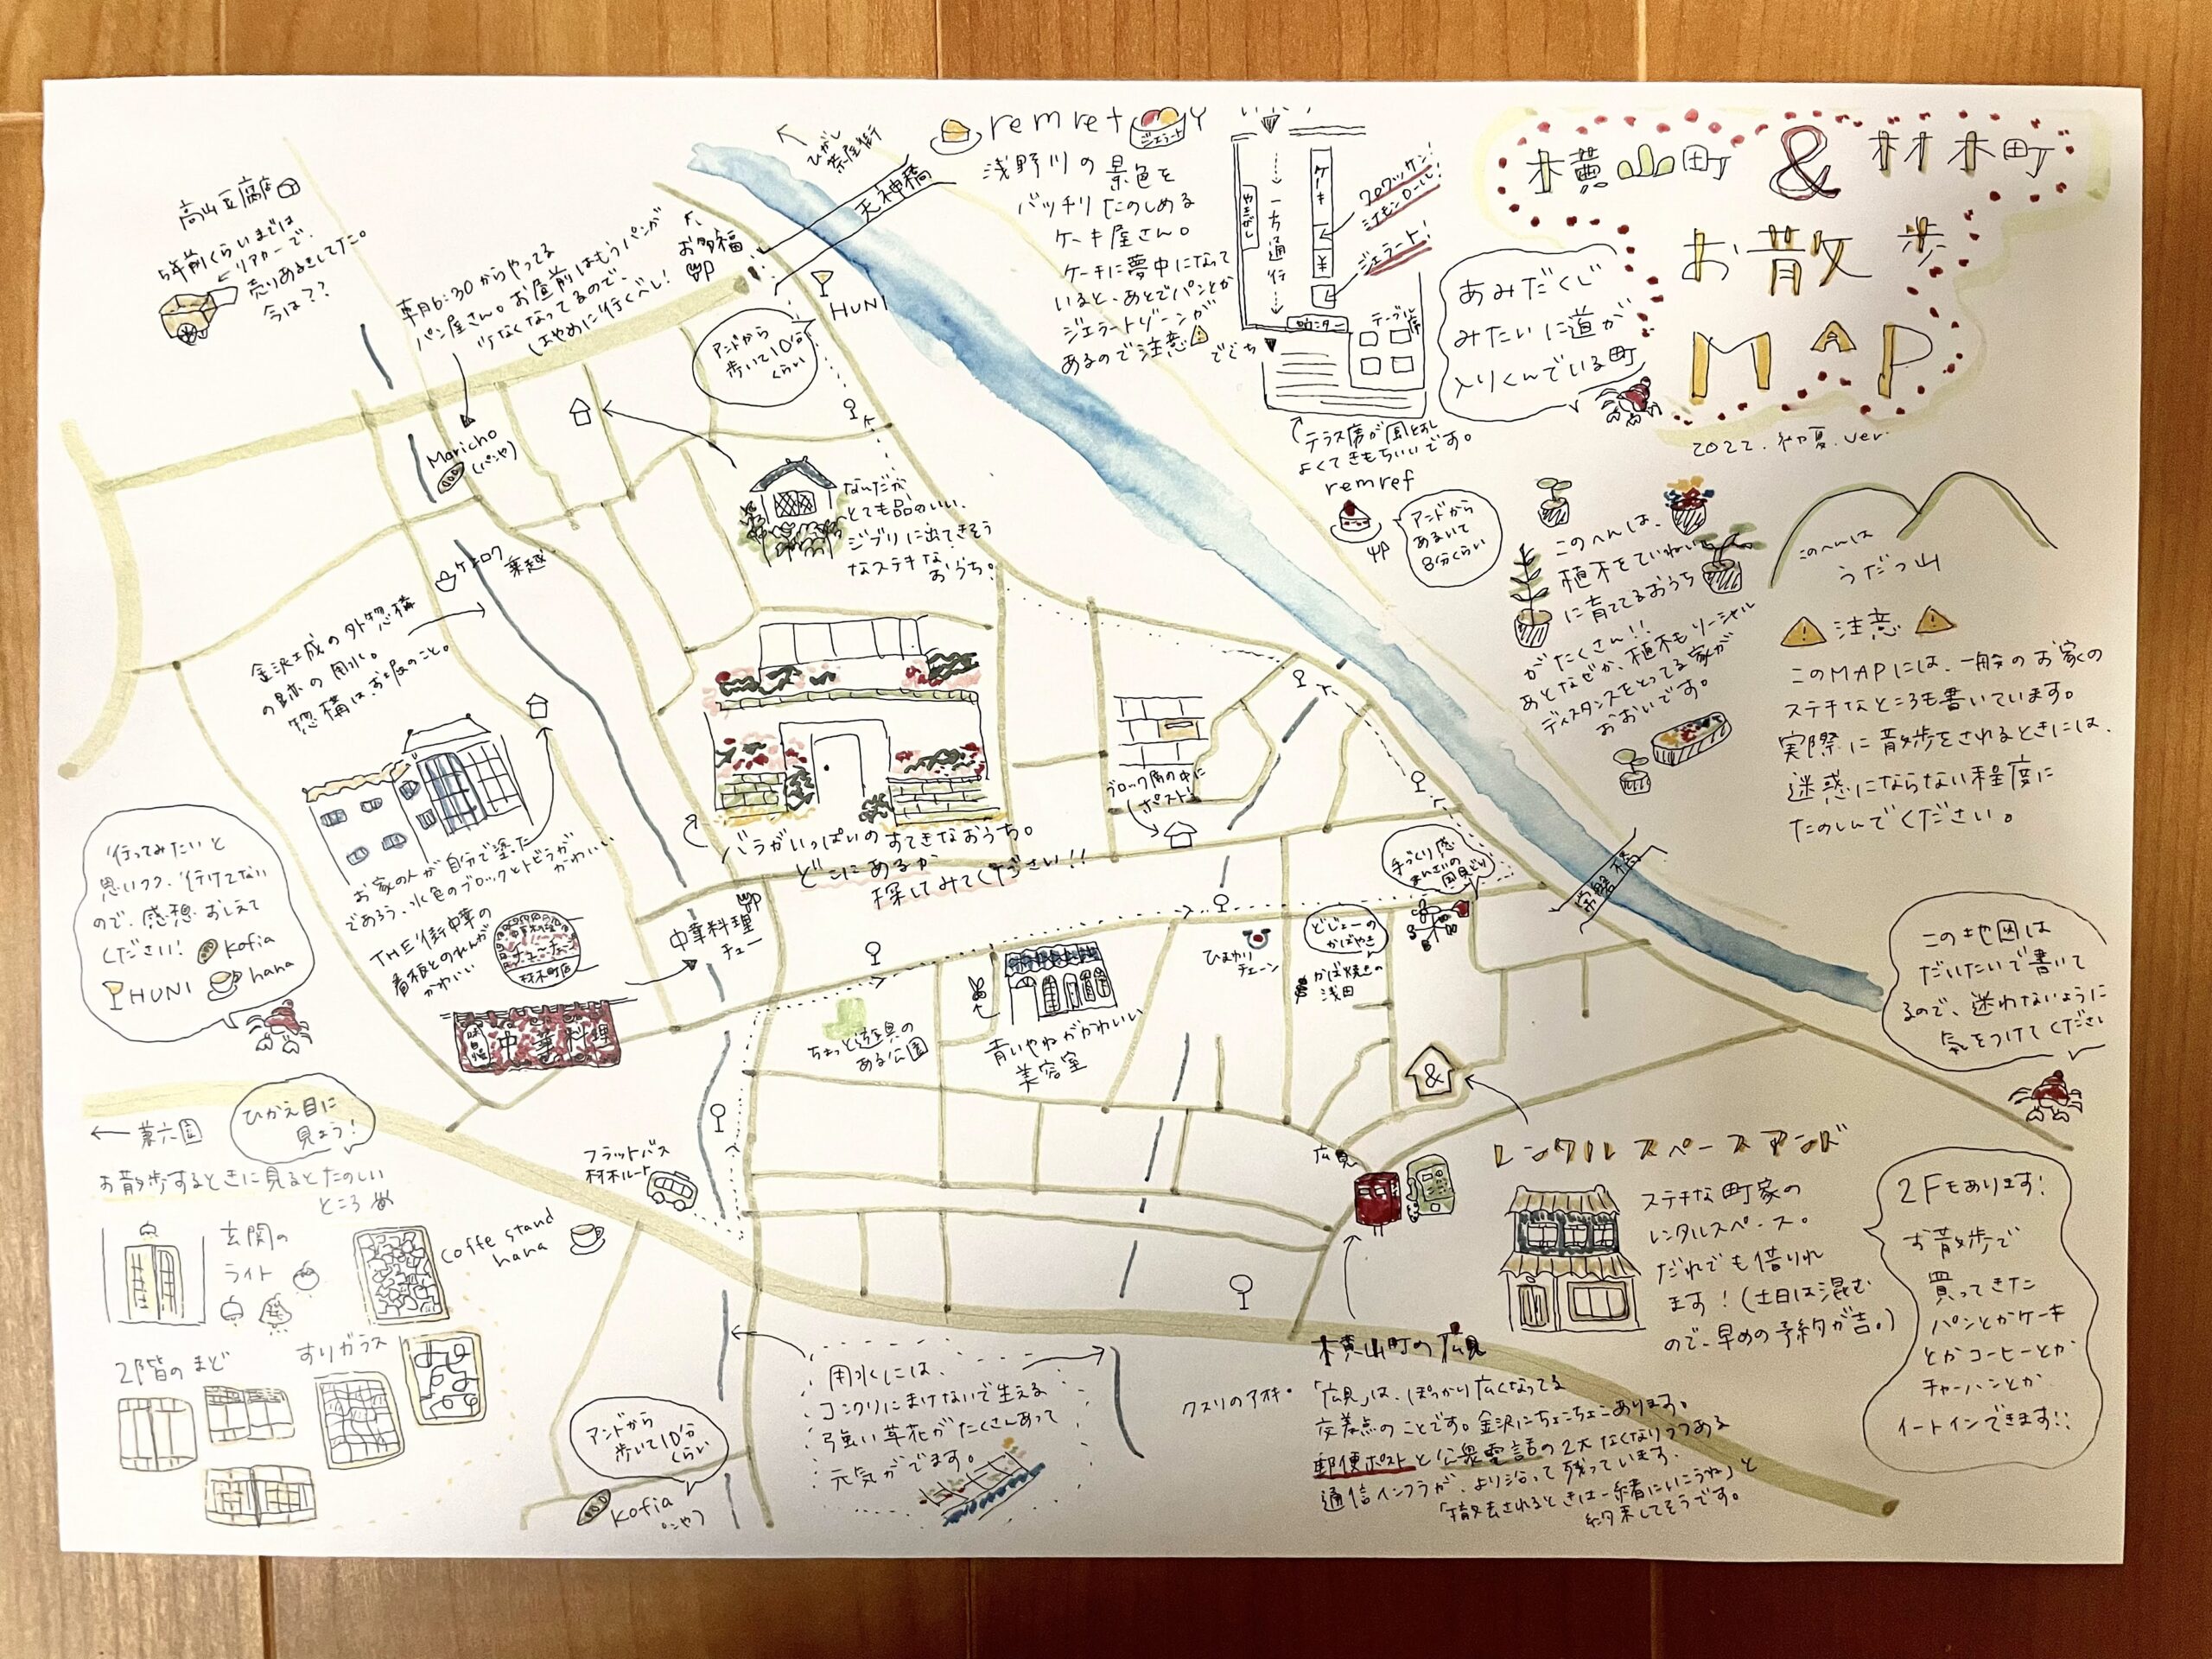 横山町 & 材木町
お散歩
MAP
2022.初夏.ver.
あみだくじ
みたいに道が
入りくんでいる町
remret
ジェラート
浅野川の景色を
バッチリたのしめる
ケーキ屋さん。
ケーキに夢中になって
いると、あとでパンとか
ジェラートゾーンが
あるので注意
一方通行
ケーキ
¥
クロワッサン!
シナモンロール!
ジェラート!
カウンター
テーブル席
でぐち
テラス席が風とおし
よくてきもちいいです。
remref
アンドから
あるいて
8分くらい
ひがし
茶屋街
天神橋
お多福
HUNI
アンドから
歩いて10分
くらい
高山豆腐店
5年前くらいまでは
リアカーで、
売りあるきしてた。
今は??
朝6:30からやってる
パン屋さん。お昼前はもうパンが
少なくなってるので、
はやめに行くべし!
Maricho
(パンヤ)
なんだか
とても品のいい、
ジブリに出てきそう
なステキな
おうち。
このへんは、
植木をていねい
に育ててるおうち
がたくさん!!
あとなぜか、植木もソーシャル
ディスタンスをとってる家が
おおいです。
このへんは
うだつ山
注意
このMAPには、一般のお家の
ステキなところも書いています。
実際に散歩をされるときには、
迷惑にならない程度に
たのしんでください。
金沢城の外惣構
の跡の用水。
惣構はお堀のこと。
お家の人が自分で塗った
であろう、水色のブロックとトビラが
かわいい
バラがいっぱいのすてきなおうち。
どこにあるか
探してみてください!!
ブロック塀の中に
ポスト
行ってみたいと
思いつつ、行けてない
ので、感想おしえて
ください! kofia
HUNI hana
THE街中華の
看板とのれんが
かわいい
チューチュー
材木町店
中華料理
中華料理
チュー
ちょっと遊具の
ある公園
青いやねがかわいい
美容室
ひまわり
チェーン
どじょーの
かばやき
かば焼きの
浅田
手づくり感
まんさいの
風見どり
常盤橋
この地図は
だいたいで書いて
るので、迷わないように
気をつけてください
&
レンタルスペースアンド
ステキな町家の
レンタルスペース。
だれでも借りれ
ます!(土日は混む
ので、早めの予約が吉。)
2Fもあります!
お散歩で
買ってきた
パンとかケーキ
とかコーヒーとか
チャーハンとか
イートインできます!!
広見
横山町の広見
「広見」は、ぽっかり広くなってる
交差点のことです。金沢にちょこちょこあります。
郵便ポストと公衆電話の2大なくなりつつある
通信インフラが、より沿って残っています。
「撤去されるときは一緒にいこうね」と
約束してそうです。
クスリのアオキ
兼六園
ひかえ目に
見よう!
お散歩するときに見るとたのしい
ところ
玄関の
ライト
2階のまど
すりガラス
フラットバス
材木ルート
coffe stand
hana
用水には、
コンクリにまけないで生える
強い草花がたくさんあって
元気がでます。
アンドから
歩いて10分
くらい
kofia
パンヤ